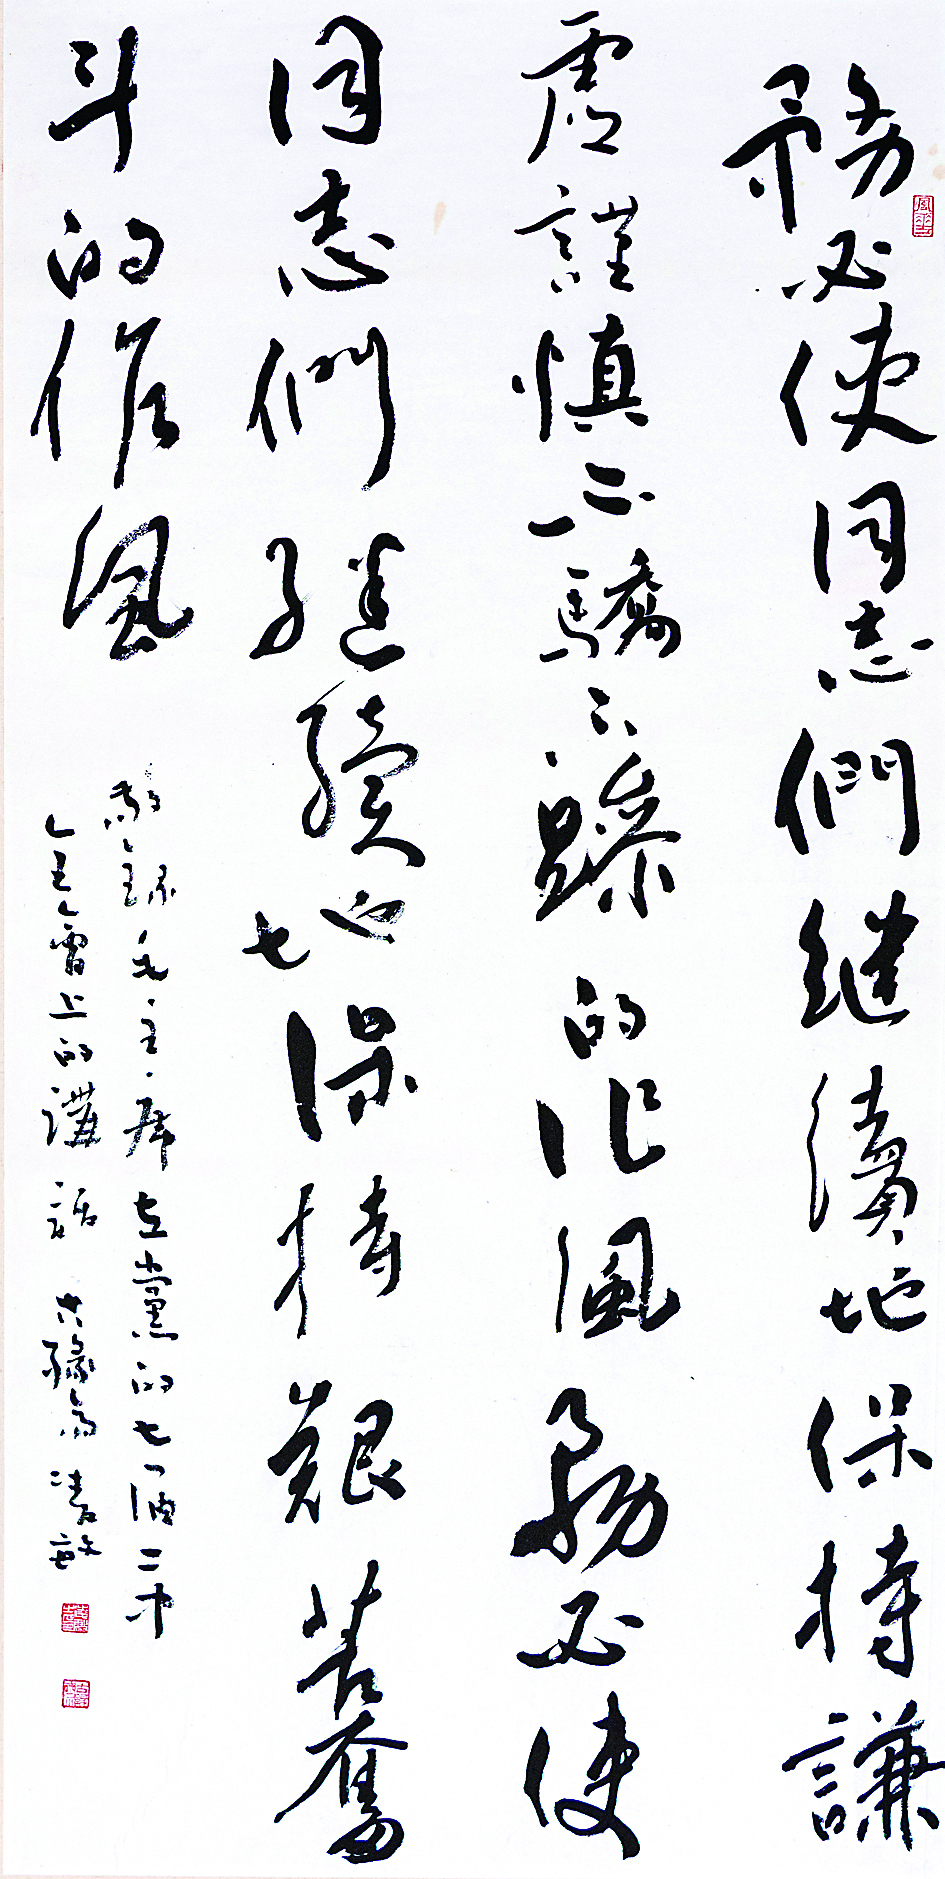 務必使同志們継續地保持謙
虛謹慎不驕不躁的作風務必使
同志們継續地保持艱苦奮
斗的作風
敬錄毛主席在黨的七屆二中
全會上的講話